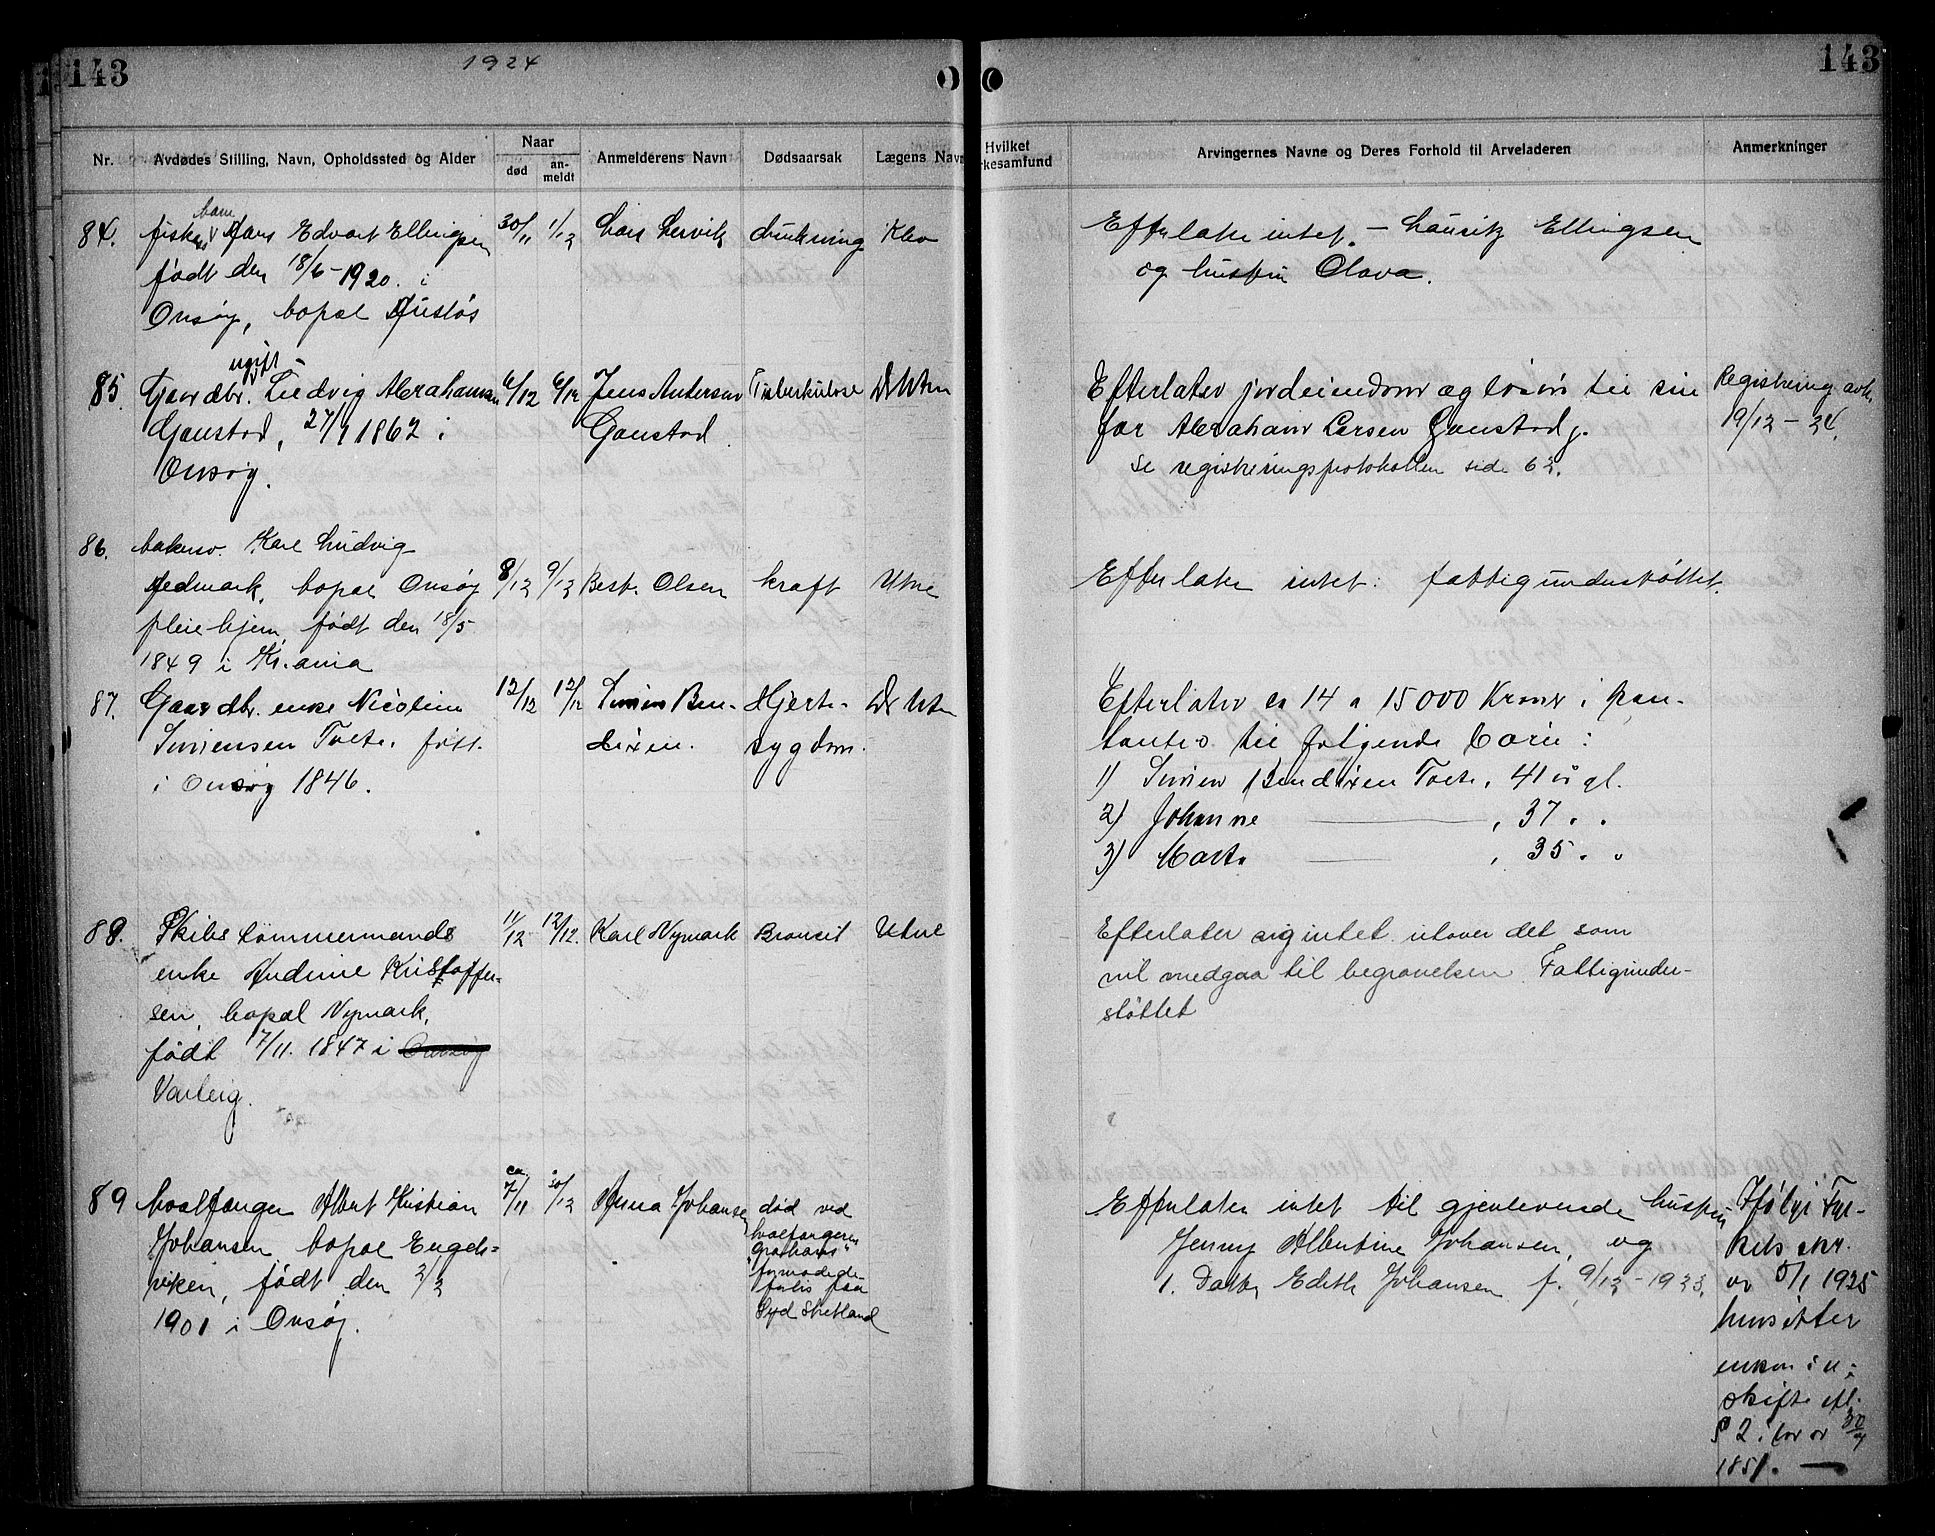 143
1924
143
Nr.
Avdødes Stilling, Navn, Opholdssted og Alder
Naar
død
an-
meldt
Anmelderens Navn
Dødsaarsak
Lægens Navn
Hvilket
rkesamfund
Arvingernes Navne og Deres Forhold til Arveladeren
Anmerkninger
84.
barn
Hans Edvart Ellingsen
født den 18/6-1920. i
Onsøy, bopæl
30/11
1/12
Lars Lervik
drukning
Efterlater intet. - Lauritz Ellingsen
og hustru Olava.
85.
ugift
Gaardbr. Ludvig Abrahamsen
Gaustad, 1862 i
Onsøy.
6/12
6/12
Jens Andersen
Gaustad
Tuberkulose
Dr Utne
Efterlater jordeiendom og løsøre til sin
far Abraham Larsen Gaustad.
Se registreringsprotokollen side 62.
Registrering avh.
19/12-24.
86.
Karl Ludvig
Hedmark, bopæl Onsøy
pleiehjem, født den 18/5
1849 i Kr.ania
8/12
9/12
Bert. Olsen
kræft
Utne
Efterlater intet: fattigunderstøttet.
87.
Gaardbr. enke Nicoline
Simensen Tofte, født
i Onsøy 1846.
12/12
12/12
Simen Ben-
dixen.
Hjerte-
sygdom.
Dr Utne
Efterlater ca 14 a 15000 Kroner i pan-
til følgende barn:
1) Simen Bendixen Tofte, 41 år gl.
2) Johanne —— , 37 " "
3) Marte —— , 35 " "
88.
Skibstømmermands
enke Andrine Kristoffer-
sen, bopæl Nymark,
født 17/11. 1847 i Onsøy
Varteig.
11/12
12/12.
Karl Nymark
Bronkit
Utne
Efterlater sig intet utover det som
vil medgaa til begravelsen. Fattigunder-
støttet
89
hvalfanger Albert Kristian
Johansen, bopæl Engels-
viken, født den 2/2
1901 i Onsøy.
ca
7/11
30/12
Anna Johansen
død ved
hvalfangeren
formodede
forlis paa
Syd Shetland
Efterlater intet til gjenlevende hustru
Jenny Albertine Johansen, og
1. Datter Edith Johansen f. 9/12-1923.
Ifølge Fyl-
kets skr.
av 5/1 1925
hensitter
enken i u-
skifte efl.
§ 2 i lov av 30/7
1851. —